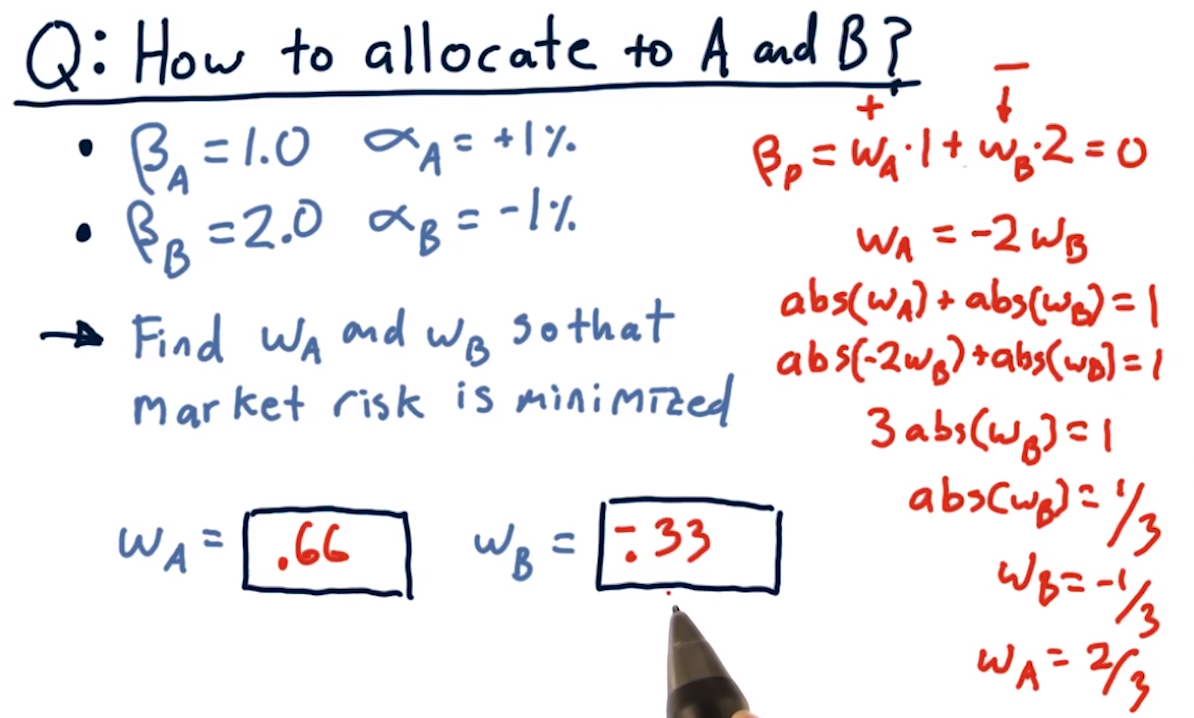 Q: How to allocate to A and B?
• β_A = 1.0 α_A = +1%
• β_B = 2.0 α_B = -1%
→ Find w_A and w_B so that
market risk is minimized
w_A = .66 w_B = -.33
+ −
↓
β_p = w_A·1 + w_B·2 = 0
w_A = -2w_B
abs(w_A) + abs(w_B) = 1
abs(-2w_B) + abs(w_B) = 1
3 abs(w_B) = 1
abs(w_B) = 1/3
w_B = -1/3
w_A = 2/3